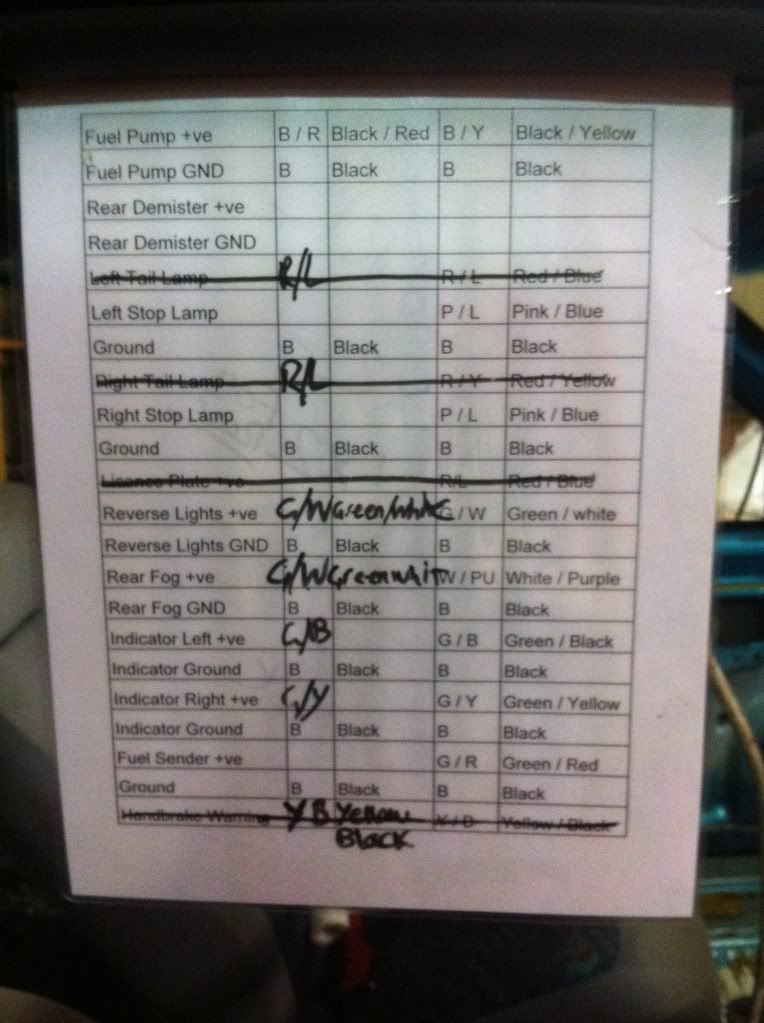 Fuel Pump +ve B / R Black / Red B / Y Black / Yellow
Fuel Pump GND B Black B Black
Rear Demister +ve
Rear Demister GND
Left Tail Lamp R/L R / L Red / Blue
Left Stop Lamp P / L Pink / Blue
Ground B Black B Black
Right Tail Lamp R/L R / Y Red / Yellow
Right Stop Lamp P / L Pink / Blue
Ground B Black B Black
Lisence Plate +ve R/L Red / Blue
Reverse Lights +ve G/W Green/white G / W Green / white
Reverse Lights GND B Black B Black
Rear Fog +ve G/W Green whit W / PU White / Purple
Rear Fog GND B Black B Black
Indicator Left +ve G/B G / B Green / Black
Indicator Ground B Black B Black
Indicator Right +ve G/Y G / Y Green / Yellow
Indicator Ground B Black B Black
Fuel Sender +ve G / R Green / Red
Ground B Black B Black
Handbrake Warning Y B Yellow Y / B Yellow / Black
Black